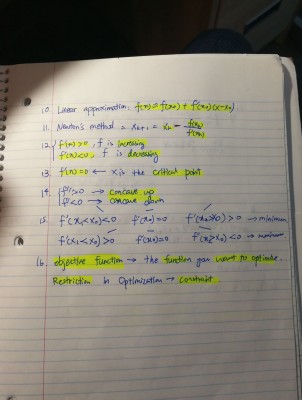 10. Linear approximation: f(x) ≈ f(x₀) + f'(x₀)(x-x₀)
11. Newton's method = xₖ₊₁ = xₖ - f(xₖ)/f'(xₖ)
12. { f'(x) > 0, f is increasing
f'(x) < 0, f is decreasing
13. f'(x) = 0 ← x is the critical point.
14. { f'' > 0 → concave up
f'' < 0 → concave down
15. f'(x<x₀) < 0 f'(x₀) = 0 f'(x>x₀) > 0 → minimum
f'(x<x₀) > 0 f'(x₀) = 0 f'(x>x₀) < 0 →
16. objective function → the function you want to optimize.
Restriction in Optimization → constraint